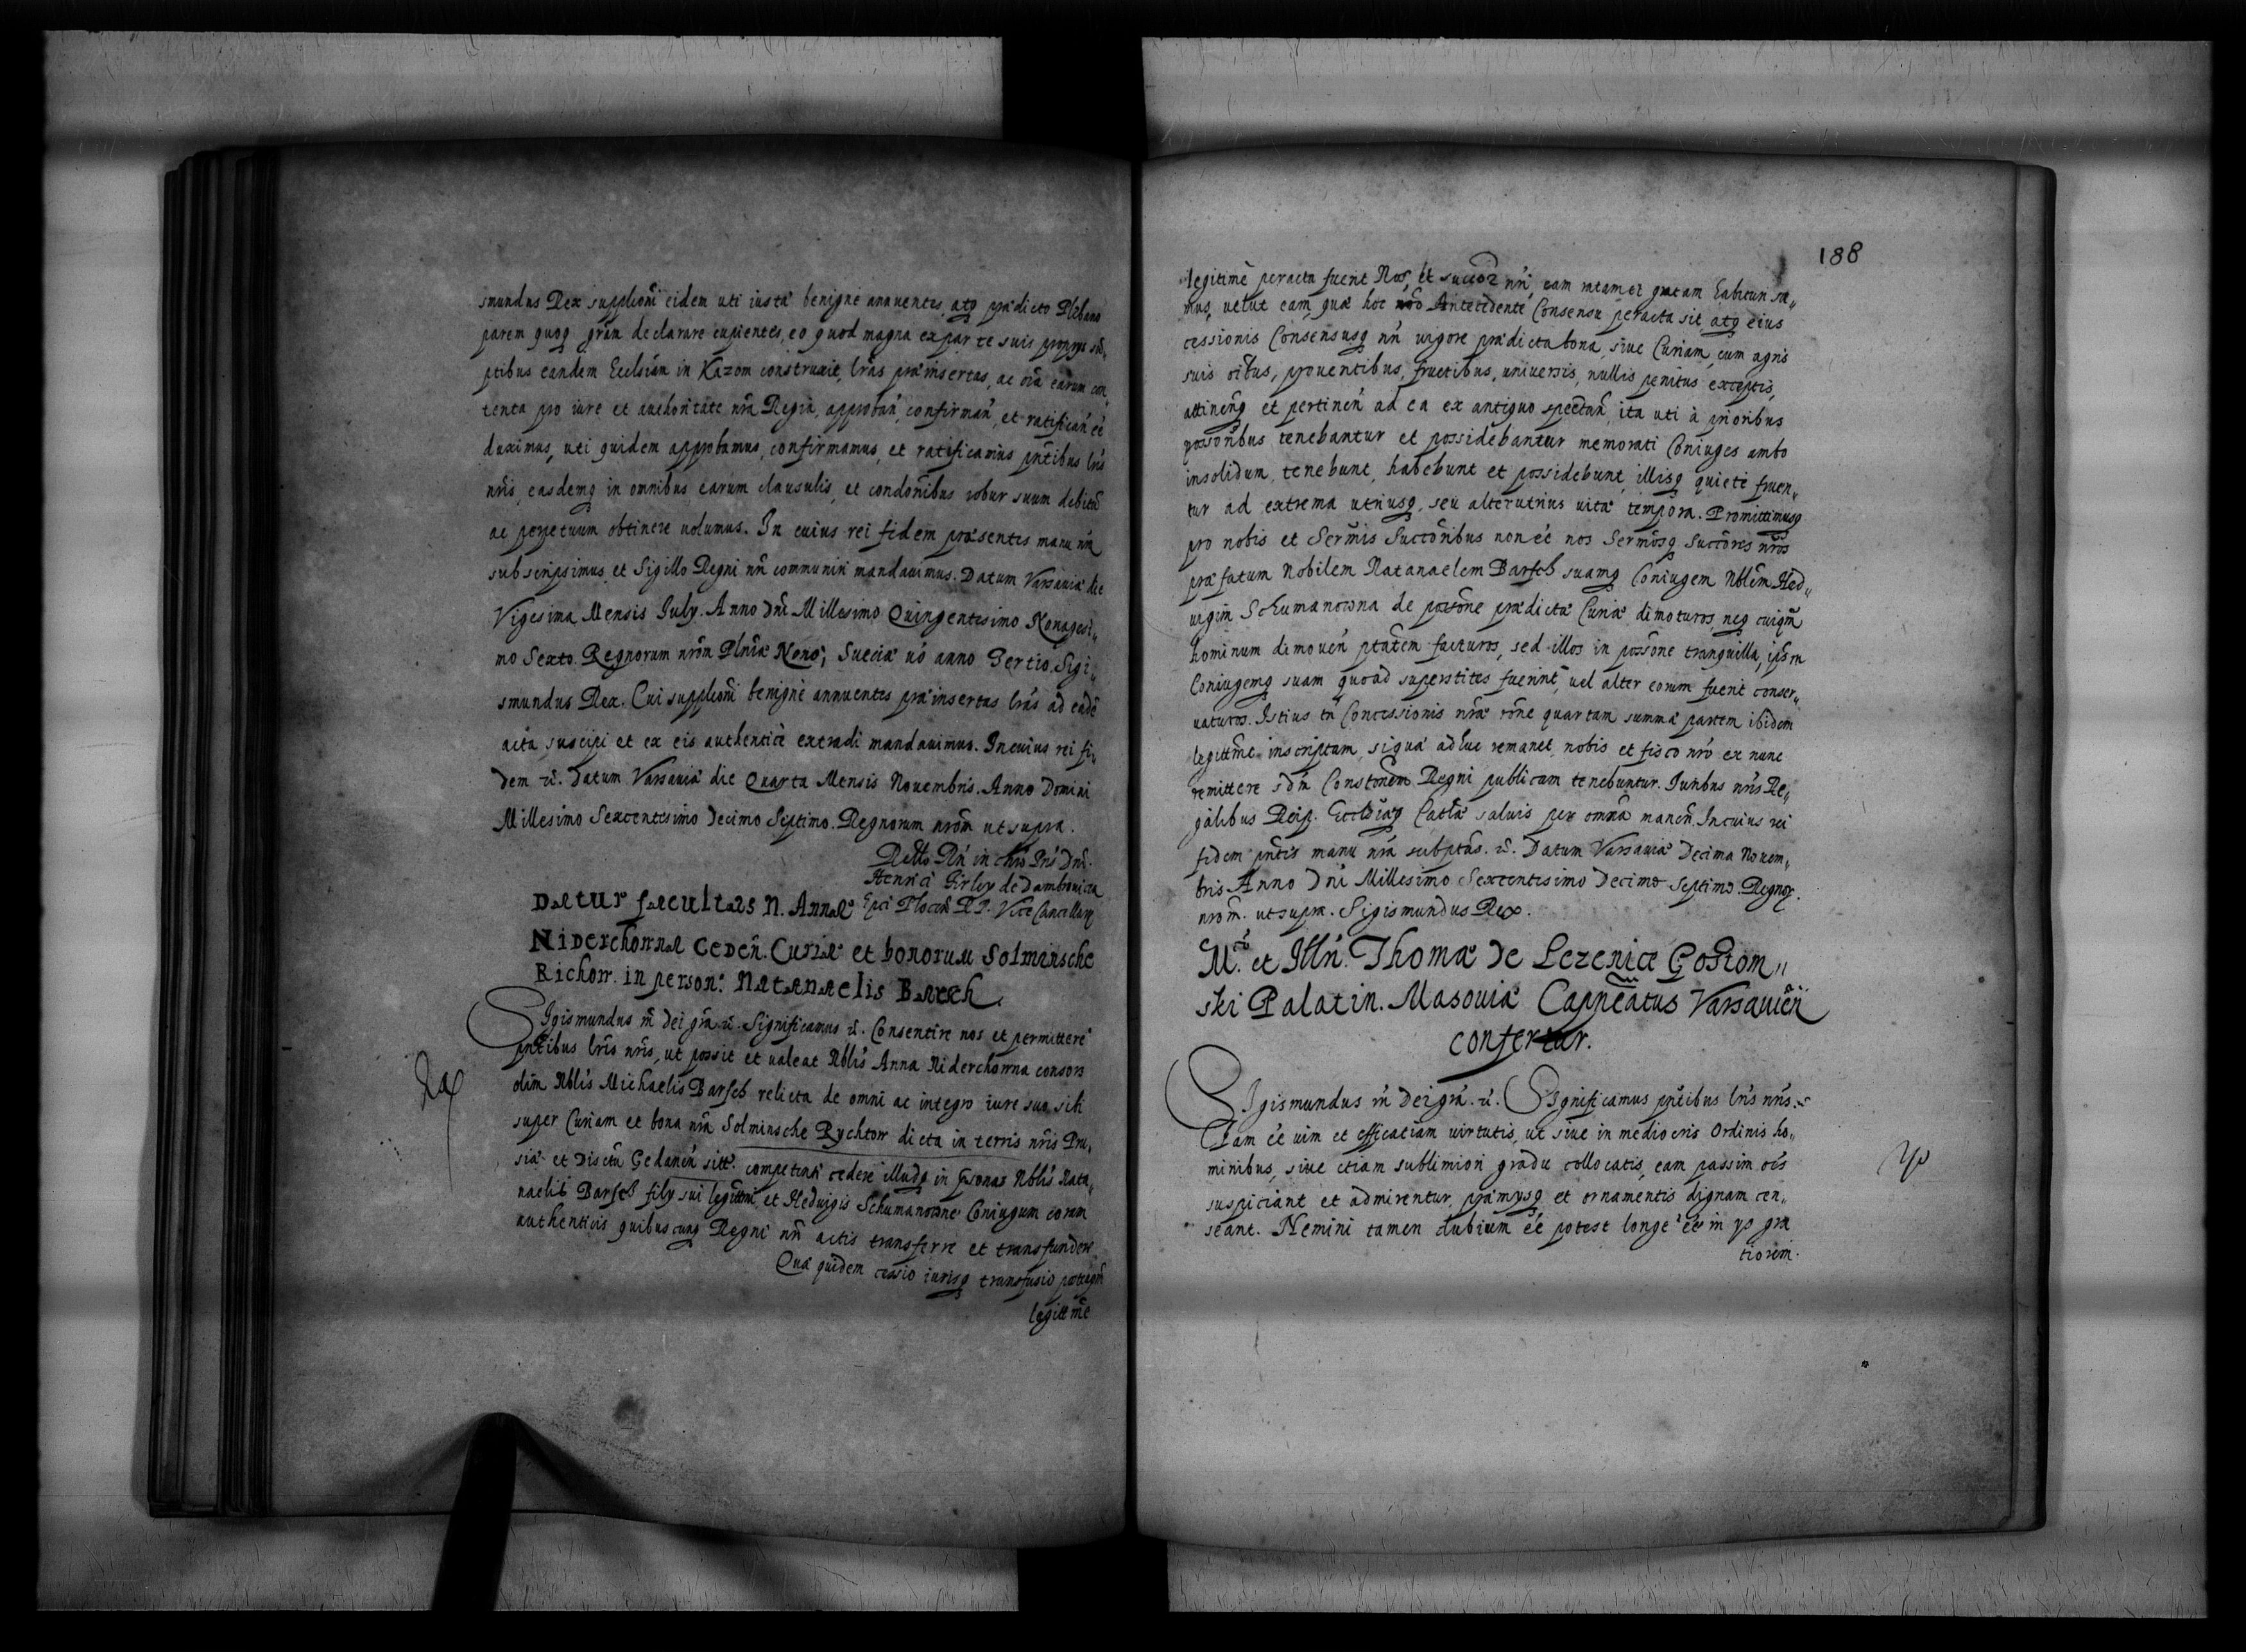 smundus Rex supplicōni eidem uti iustæ benigne annuentes, atq prædicto Plebano
parem quoq grām declarare cupientes, eo quod magna ex parte suis proprys sū„
ptibus eandem Ecclsiam in Kazom construxit, lrās præinsertas, ac oīa earum con„
tenta pro iure et authoritate nrā Regia, approbañ, confirmañ, et ratificañ eē
duximus, uti quidem approbamus, confirmamus, et ratificamus pntibus lrīs
nrīs, easdemq in omnibus earum clausulis, et condonibus robur suum debitū
ac perpetuum obtinere volumus. In cuius rei fidem præsentes manu nrā
subscripsimus et Sigillo Regni nrī communiri mandavimus. Datum Varsaviæ die
Vigesima Mensis July. Anno Dnī Millesimo Quingentesimo Nonagesi„
mo Sexto. Regnorum nrōm Plniæ Nono, Sueciæ vō anno Tertio. Sigi„
smundus Rex. Cui supplicōni benignè annuentes præinsertas lrās ad eadē
acta suscipi et ex eis authenticè extradi mandavimus. In cuius rei fi„
dem ec̄. Datum Varsaviæ die Quarta Mensis Novembris. Anno Domini
Millesimo Sexcentesimo Decimo Septimo. Regnorum nrōm ut supra.
Relō Rñ in chrō Prīs Dnī.
Henrici Firley de Dambrovica
Datur facultas N. Annæ Epī Plocēn R. P. Vice Cancellarÿ
Niderchowna Cedeñ. Curiæ et bonorum Solminsche
Richow. in person: Natanaelis Barsch.
Sigismundus 3ᵘˢ Dei grā. ec̄. Significamus ec̄. Consentire nos et permittere
pntibus lrīs nrīs, ut possit et valeat Nblīs Anna Niderchowna consors
olim Nblīs Michaelis Barsch relicta de omni ac integro iure suo sibi
super Curiam et bona nrā Solminsche Rychtow dicta in terris nrīs Pru„
siæ et Districtu Gedaneñ sitt. competenti cedere illudq in psonas Nblīs Nata„
naelis Barsch fily sui legittimi, et Heduigis Schumanowne Coniugum coram
authenticis quibuscunq Regni nrī actis transferre et transfundere
Quæ quidem cessio iurisq transfusio postaquā
legittimè

188
legitimè peracta fuerit, Nos, et succōr nrī, eam ratam et gratam habituri su„
mus, velut eam quæ hoc nrō Antecedente Consensu peracta sit, atq eius
cessionis Consensusq nrī vigore prædicta bona, sive Curiam, cum agris
suis oībus, proventibus, fructibus, universis, nullis penitus exceptis,
attineñq et pertineñ ad ea ex antiquo spectañ, ita uti à prioribus
possoribus tenebantur et possidebantur memorati Coniuges ambo
insolidum, tenebunt, habebunt et possidebunt, illisq quietè fruen„
tur ad extrema utriusq, seu alterutrius vitæ tempora. Promittimusq
pro nobis et Sermīs Succōribus non eē nos Sermōsq Succōres nrōs
præfatum Nobilem Natanaelem Barsch suamq Coniugem Nblēm Hed„
vigim Schumanowna de possōne prædictæ Curiæ dimoturos, neq cuiqm̄
hominum dimoveñ ptātem facturos, sed illos in possōne tranquilla, ipsm
Coniugemq suam quoad superstites fuerint, vel alter eorum fuerit conser„
vaturos. Istius tñ Concessionis nrā rōne quartam summæ partem ibidem
legittimè inscriptam, si quæ adhuc remanet, nobis et fisco nrō ex nunc
remittere sdm Constōnem Regni publicam tenebuntur. Iuribus nrīs Re„
galibus Reip. Ecclsiæq Cathlæ salvis per omnia maneñ. In cuius rei
fidem pntīs manu nrā subptās. ec̄. Datum Varsaviæ Decima Novem„
bris Anno Dnī Millesimo Sexcentesimo Decimo Septimo. Regnor.
nrōm. ut supra. Sigismundus Rex.
M.cō et Illrī. Thomæ De Lezenice Gostom„
ski Palatin. Masoviæ Capneatus Varsavieñ
confertur.
Sigismundus 3ᵘˢ Dei grā. ec̄. Significamus pntibus lrīs nrīs.
Eam eē vim et efficatiam virtutis, ut sive in mediocris Ordinis ho„
minibus, sive etiam sublimiori gradu collocatis, eam passim oēs
suspiciant et admirentur, præmysq et ornamentis dignam cen„
seant. Nemini tamen dubium eē potest longè eē in ys gra
tiorem.